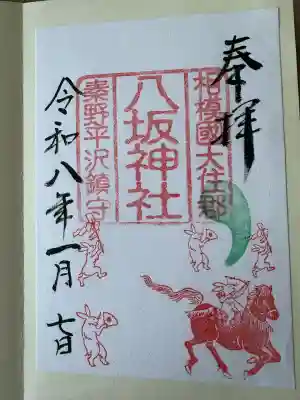 奉拝
相模國大住郡
八坂神社
秦野平沢鎮守
令和八年一月七日